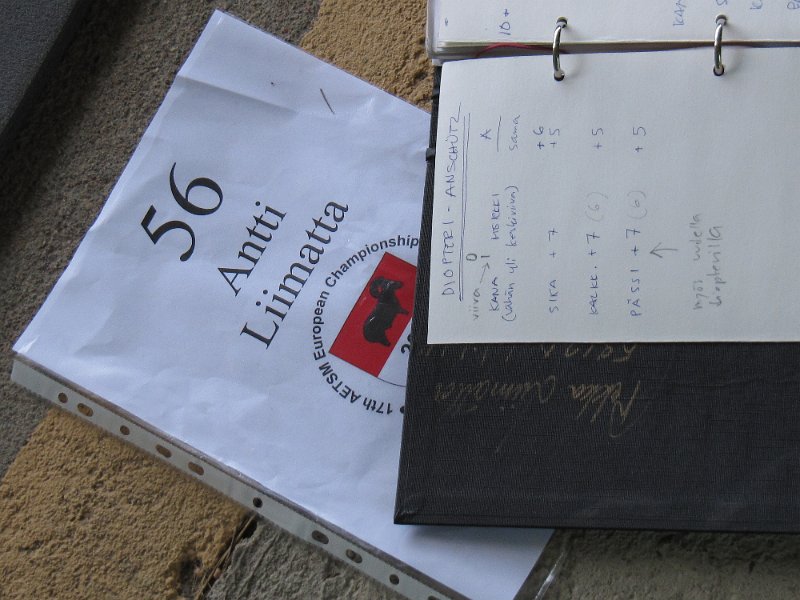 56
Antti
Liimatta
17th AETSM European Championship
20
10+
DIOPTERI - ANSCHÜTZ
viiva → 0
KANA 1 A
(vähän yli keskiviiva) sama
SIKA + 7 +6
+5
KALKK. + 7 (6) +5
PÄSSI + 7 (6) +5
↑
myös uudella
diopterilla
Pekka Liimatta